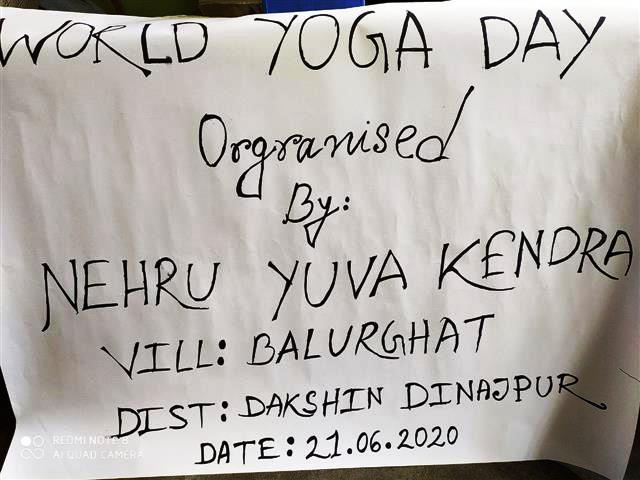 WORLD YOGA DAY
Orgranised
By:
NEHRU YUVA KENDRA
VILL: BALURGHAT
DIST: DAKSHIN DINAJPUR
DATE: 21.06.2020
REDMI NOTE 8
AI QUAD CAMERA